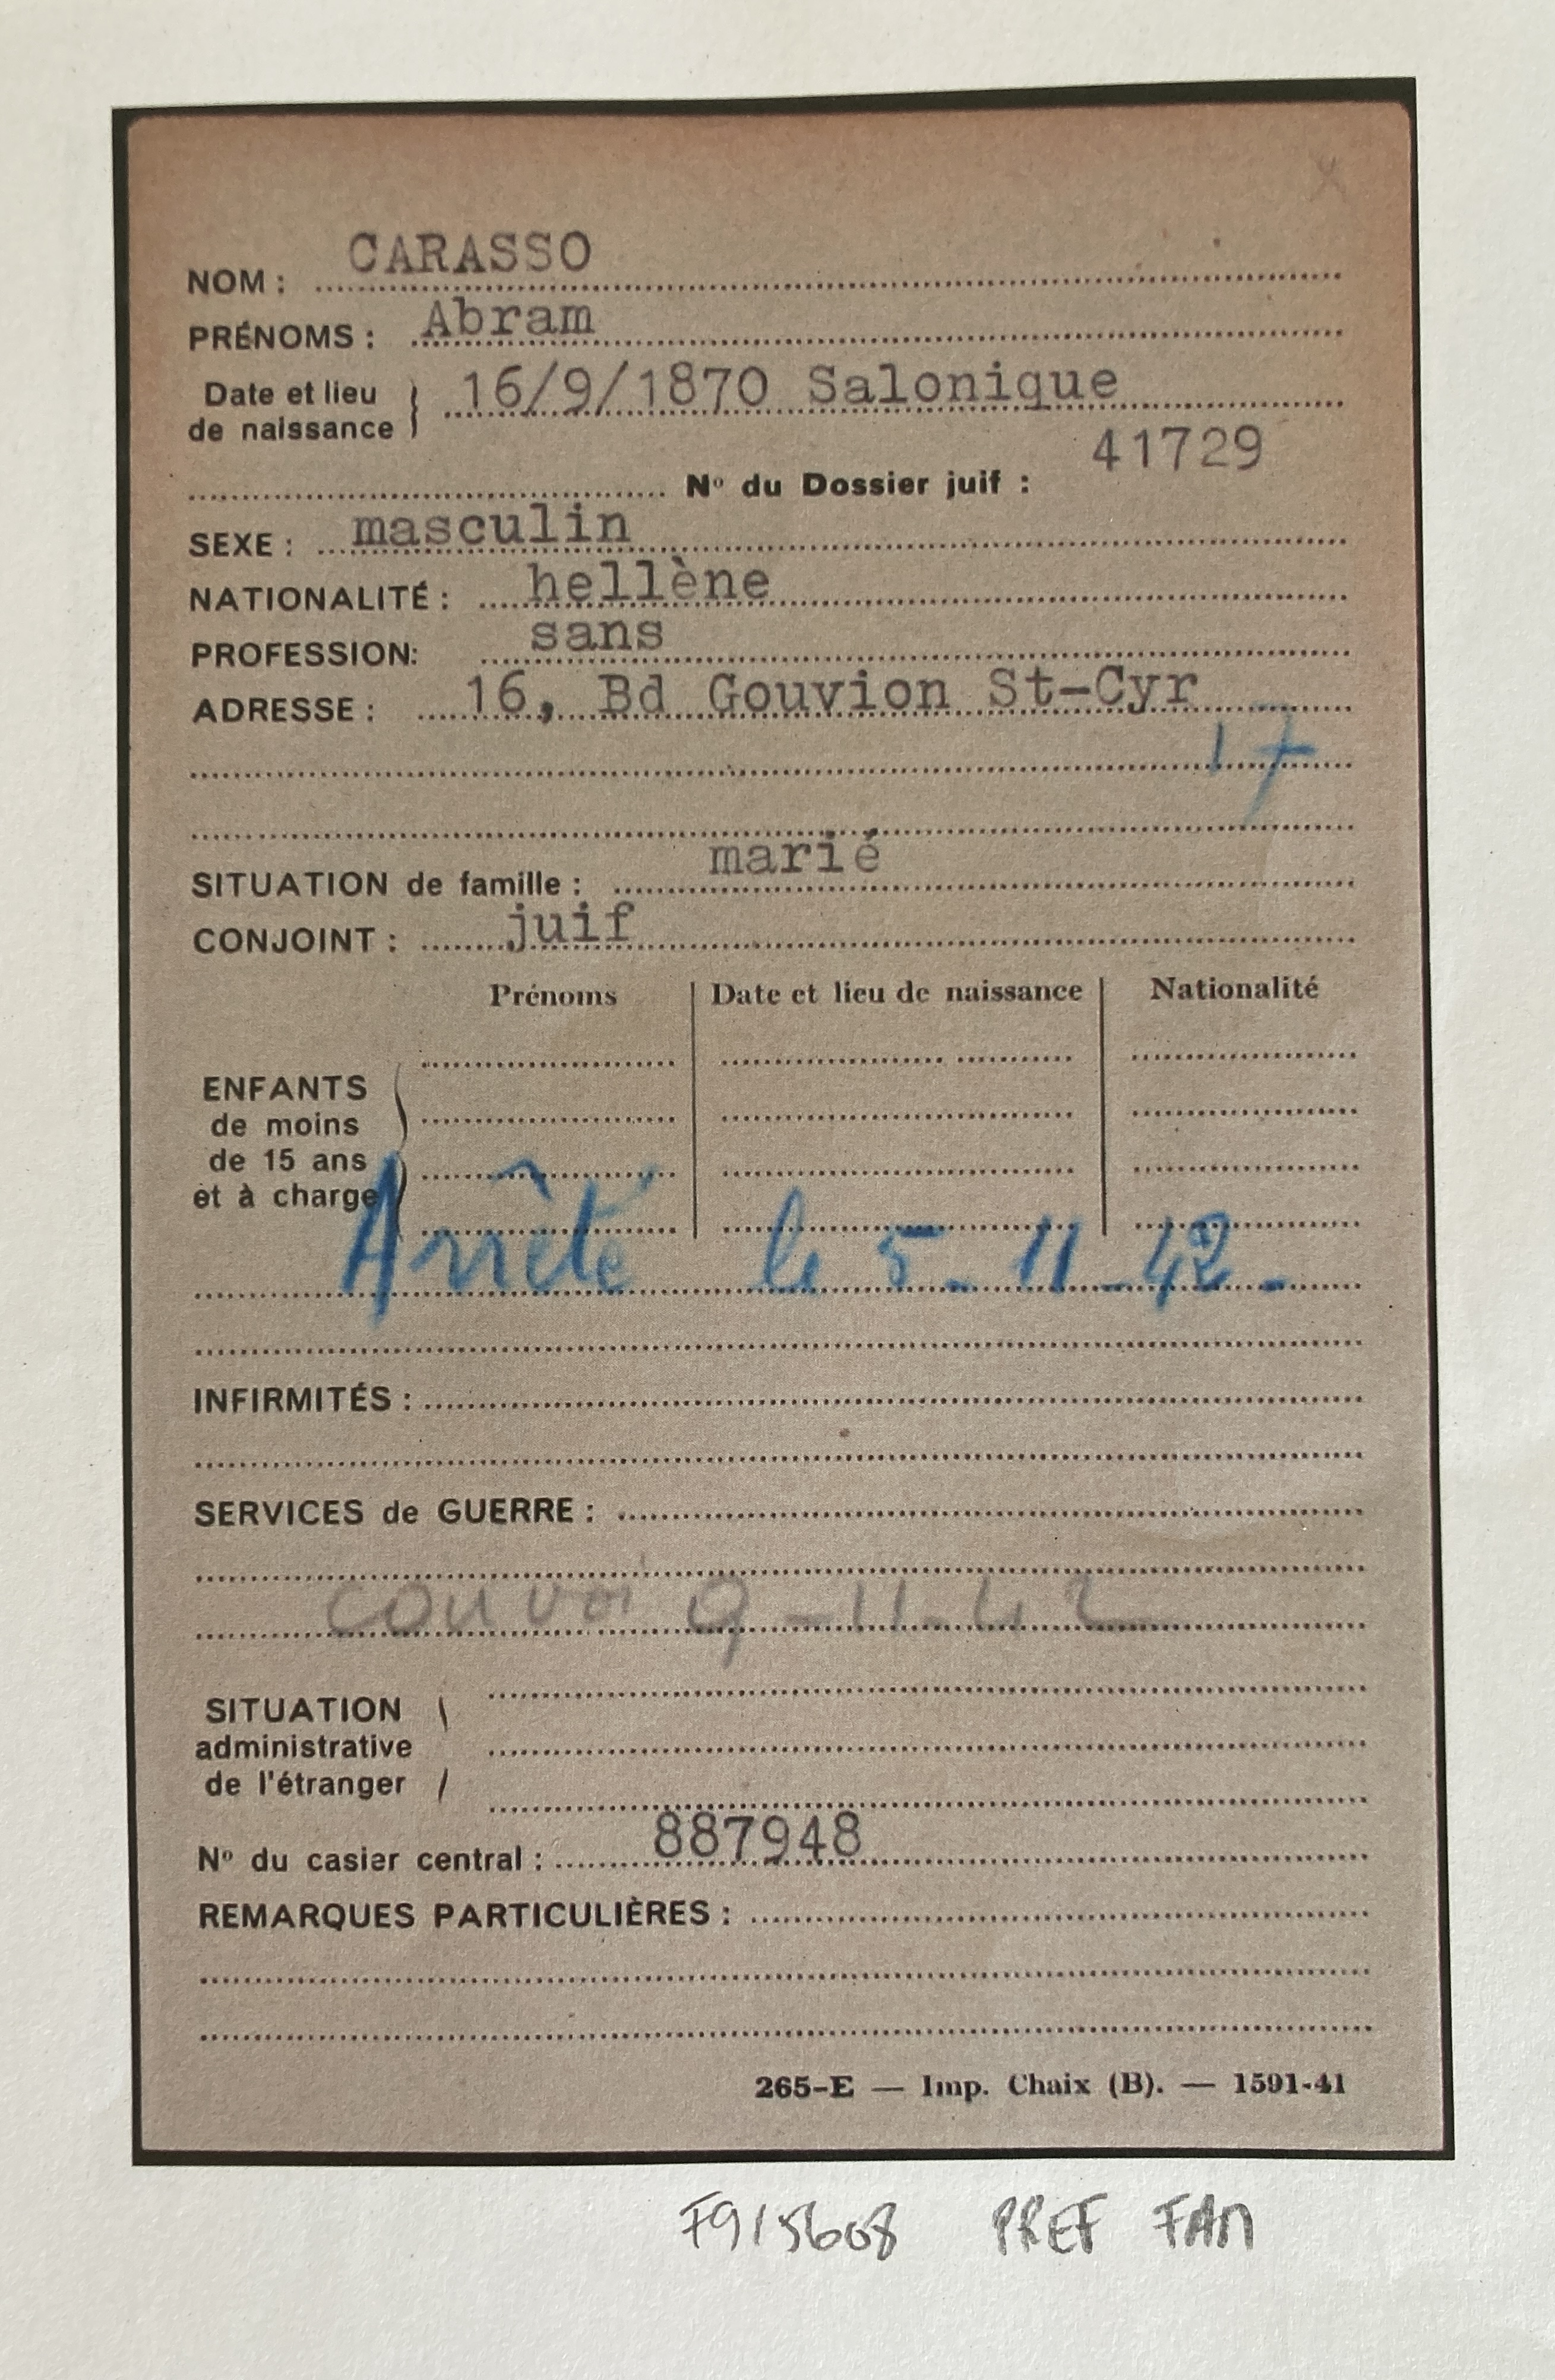 NOM : CARASSO
PRÉNOMS : Abram
Date et lieu de naissance 16/9/1870 Salonique
N° du Dossier juif : 41729
SEXE : masculin
NATIONALITÉ : hellène
PROFESSION: sans
ADRESSE : 16, Bd Gouvion St-Cyr
17
SITUATION de famille : marié
CONJOINT : juif
Prénoms Date et lieu de naissance Nationalité
ENFANTS
de moins
de 15 ans
et à charge
Arrêté le 5-11-42-
INFIRMITÉS :
SERVICES de GUERRE :
convoi 9-11-42
SITUATION
administrative
de l'étranger
N° du casier central : 887948
REMARQUES PARTICULIÈRES :
265-E — Imp. Chaix (B). — 1591-41
F9/5608 PREF FAM